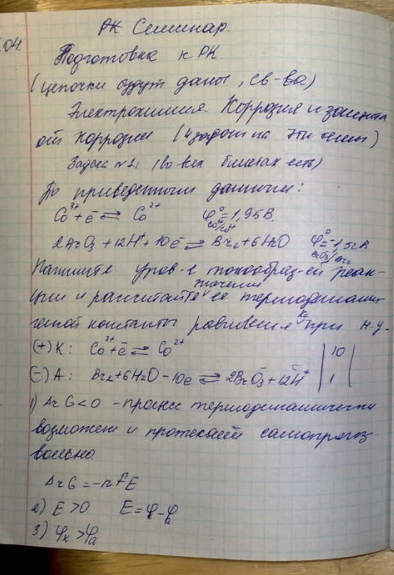 04.
РК Семинар.
Подготовка к РК.
(цепочки будут даны, св-ва)
Электрохимия Коррозия и защита
от коррозии (4 задачи на эти темы)
Задача №1: (во всех билетах есть)
По приведённым данным:
Co³⁺+ē ⇄ Co²⁺ φ°Co³⁺/Co²⁺=1,95В
2BrO₃⁻+12H⁺+10ē ⇄ Br₂+6H₂O φ°BrO₃⁻/Br₂=1,52В
Напишите урав-е токообраз-ей реак-
ции и рассчитайте значение её термодинами-
ческой константы равновесия Kc при н.у.
(+)К: Co³⁺+ē ⇄ Co²⁺ |10|
(-)А: Br₂+6H₂O-10ē ⇄ 2BrO₃⁻+12H⁺ |1|
1) ΔrG<0 - процесс термодинамически
возможен и протекает самопроиз-
вольно
ΔrG=-nFE
2) E>0 E=φк-φа
3) φк>φа